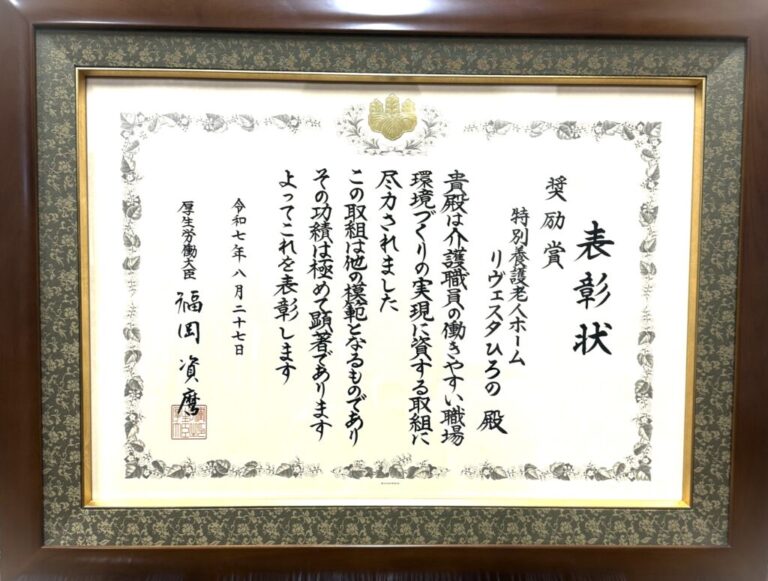 表彰状
奨励賞
特別養護老人ホーム
リヴェスタひろの 殿
貴殿は介護職員の働きやすい職場
環境づくりの実現に資する取組に
尽力されました
この取組は他の模範となるものであり
その功績は極めて顕著であります
よってこれを表彰します
令和七年八月二十七日
厚生労働大臣 福岡資麿